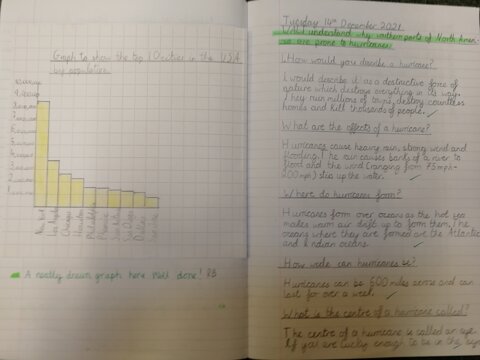 Graph to show the top 10 cities in the USA
by population.
New York
Los Angeles
Chicago
Houston
Philadelphia
Phoenix
San Diego
Dallas
San Jose
A neatly drawn graph here. Well done! RB
Tuesday 14th December 2021
understand why northern parts of North Amer-
are prone to hurricanes
How would you describe a hurricane?
I would describe it as a destructive force of
nature which destroys everything in its way.
They ruin millions of towns, destroy countless
homes and kill thousands of people.
What are the effects of a hurricane?
Hurricanes cause heavy rain, strong wind and
flooding. The rain causes banks of a river to
flood and the wind (ranging from 75mph-
200mph) stirs up the water.
Where do hurricanes form?
Hurricanes form over oceans as the hot sea
makes warm air drift up to form them. The
oceans where they are formed are the Atlantic
and Indian oceans.
How wide can hurricanes be?
Hurricanes can be 600 miles across and can
last for over a week.
What is the centre of a hurricane called?
The centre of a hurricane is called an eye.
If you are lucky enough to be in the eye